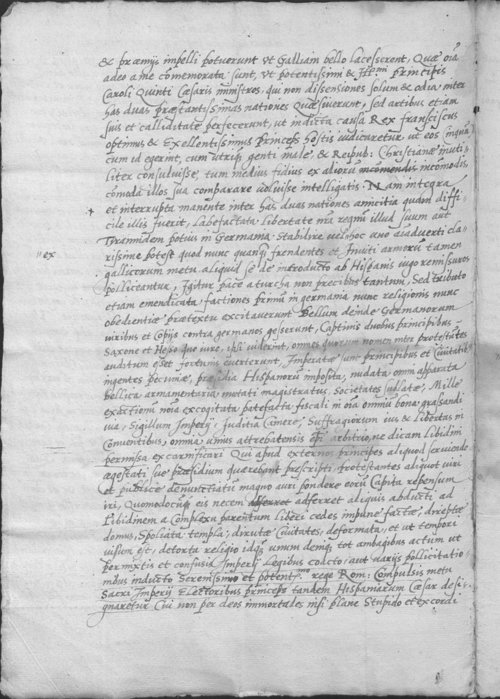 & præmijs impelli potuerunt vt Galliam bello lacesserent, Quæ oīa
adeo a me comemorata sunt, vt potentissimi & Ill.mi principis
Caroli Quinti Cæsaris ministros, qui non dissensiones solum & odia inter
has duas præstantissimas nationes Quæsiuerunt, sed artibus etiam
suis et calliditate perfecerunt, ut indicta causa Rex franciscus
optimus & Excellentissimus Princeps hostis iudicaretur ut eos inquā
cum id egerint, cum utriq; genti male, & Reipub: Christianæ inuti-
liter consuluisse, tum medius fidius ex aliorū incomodis incōmodis,
cōmoda illos sua comparare uoluisse intelligatis. Nam integra
et interrupta manente inter has duas nationes amicitia quam diffi-
cile illis fuerit, Labefactata libertate mā regni illud suum aut
Tyrannidem potius in Germania stabilire uel hoc uno aīaduerti cla-
rissime potest quod nunc quanq; frendentes et Inuiti armorū tamen
ex
gallicorum metu aliquid se de introducto ab Hispanis iugo remissuros
polliceantur, Igitur pace a turcha non precibus tantum, Sed tributo
etiam emendicata, factiones primū in germania nunc religionis nunc
obedientiæ prætextu excitauerunt Bellum deinde Germanorum
uiribus et Copijs contra germanos gesserunt, Captinis duobus principibus
Saxone et Hesso que iure, illi uiderint, omnes quorum nomen inter protestātes
auditum esset fortunis euerterunt, Imperatæ sunt principibus et Ciuitatib
ingentes pecuniæ, præsidia Hispanorū imposita, nudata omni apparatu
bellico armamentaria mutati magistratus, Societates sublatæ, Mille
exactioni noia excogitata patefacta fiscali in oīa omniū bona grassandi
uia, Sigillum Imperij, Iuditia Cameræ, Suffragiorum ius & libertas in
Conuentibus, omnia unius attrebatensis epi arbitrio, ne dicam Libidini
permissa ex carnificari Qui apud externos principes aliquod seruiendo
ægestati suæ præsidium quærebant prescripti protestantes aliquot uiri
et publice denunctiatū magno auri pondere eorū Capita repensum
iri, Quomodocūq; eis necem adferret adferret aliquis abducti ad
Libidinem a Complexu parentum liberi cedes impune factæ, direptæ
domus, Spoliata templa, dirutæ Ciuitates, deformata, et ut tempori
uisum est, detorta religio idq; unum demū tot ambagibus actum ut
permixtis et confusis Imperij legibus coacto, aut uarijs pollicitatio-
nibus inducto Serenissimo et potentss.mo rege Rom: Compulsis metu
Sacri Imperij Electoribus princeps tandem Hispaniarum Cæsar desi-
gnaretur Cui non per deos immortales nisi plane Stupido et excordi